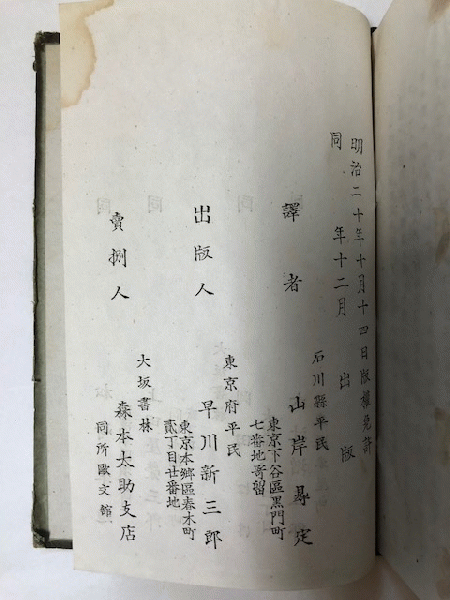 明治二十年十月十四日版權免許
同年十二月出版
譯者
石川縣平民
山岸
東京下谷區黒門町
七番地寄留
出版人
東京府平民
早川新三郎
東京本郷區春木町
貳丁目廿番地
賣捌人
大坂書林
森本太助支店
同所歐文館